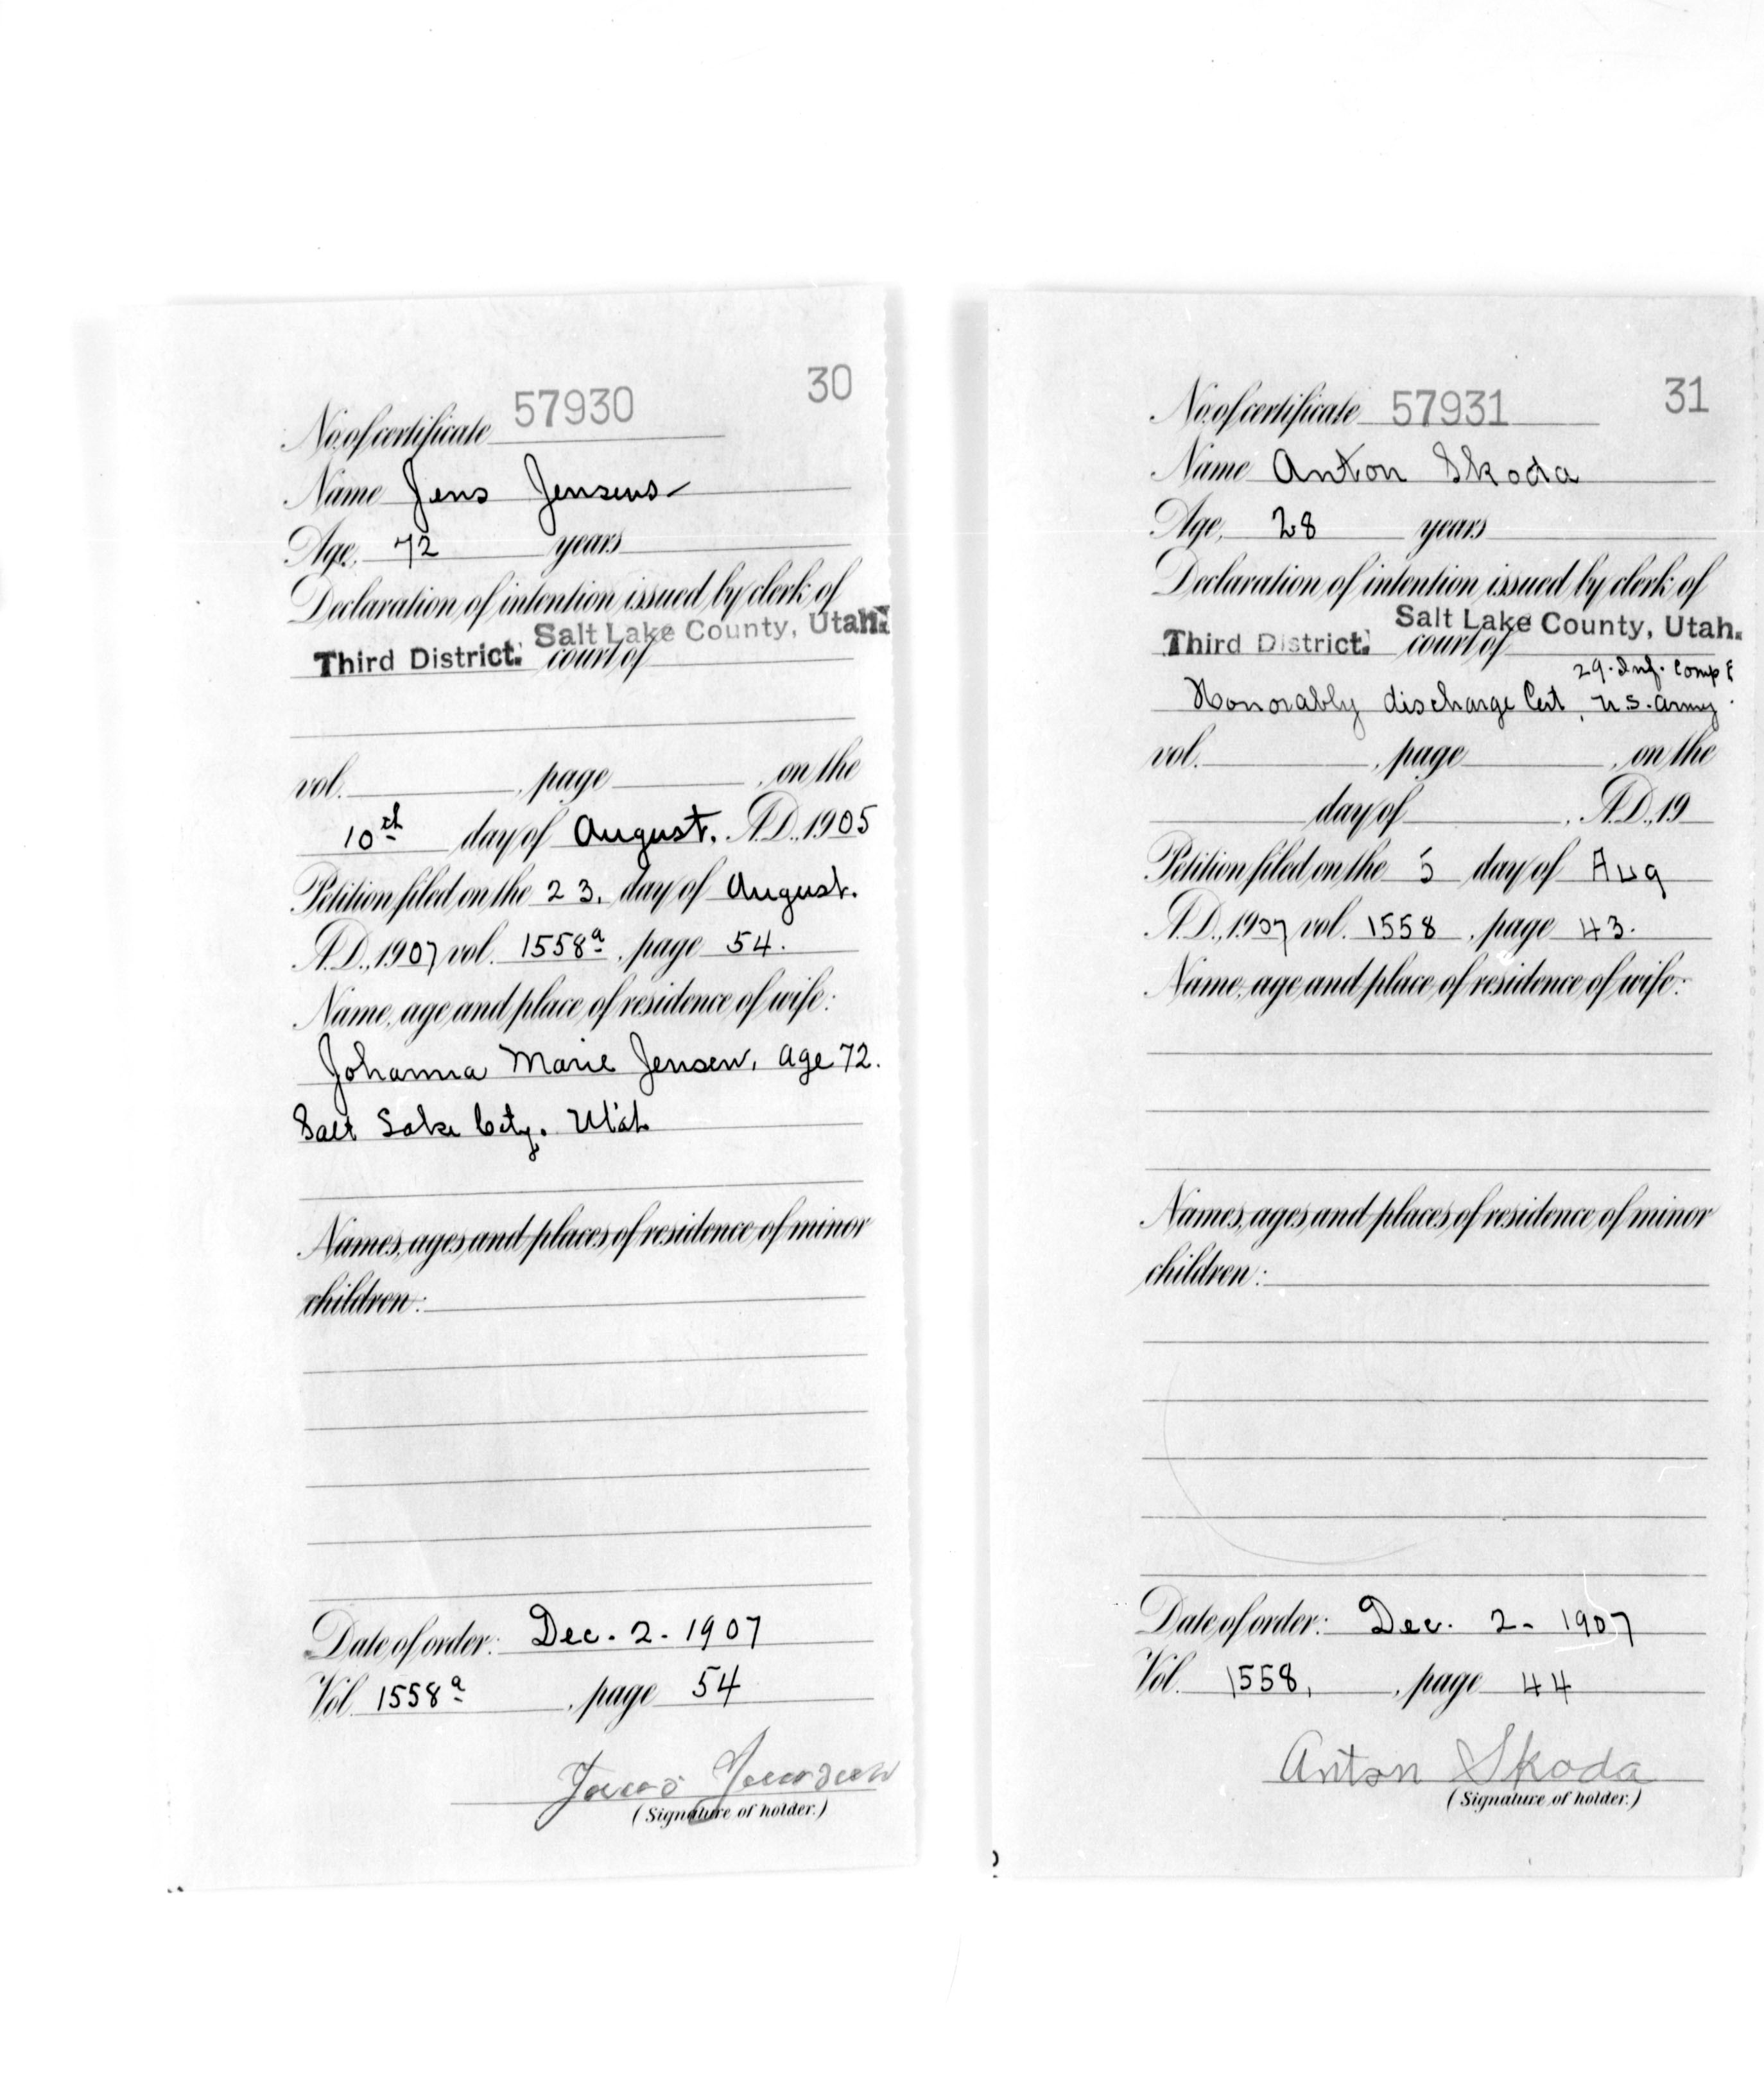 30
No. of certificate 57930
Name Jens Jensen
Age, 72 years
Declaration of intention issued by clerk of
Salt Lake County, Utah.
Third District. court of
vol. , page , on the
10th day of August. A.D., 1905
Petition filed on the 23. day of August.
A.D., 1907 vol. 1558a, page 54.
Name, age and place of residence of wife:
Johanna Marie Jensen, age 72.
Salt Lake City. Utah
Names, ages and places of residence of minor
children:
Date of order: Dec. 2. 1907
Vol. 1558a, page 54
Jens Jensen
(Signature of holder.)
31
No. of certificate 57931
Name Anton Skoda
Age, 28 years
Declaration of intention issued by clerk of
Salt Lake County, Utah.
Third District. court of
29. Inf. Comp E
Honorably discharge Cert, U.S. Army.
vol. , page , on the
day of , A.D., 19
Petition filed on the 5 day of Aug
A.D., 1907 vol. 1558, page 43.
Name, age and place of residence of wife:
Names, ages and places of residence of minor
children:
Date of order: Dec. 2 - 1907
Vol. 1558, , page 44
Anton Skoda
(Signature of holder.)